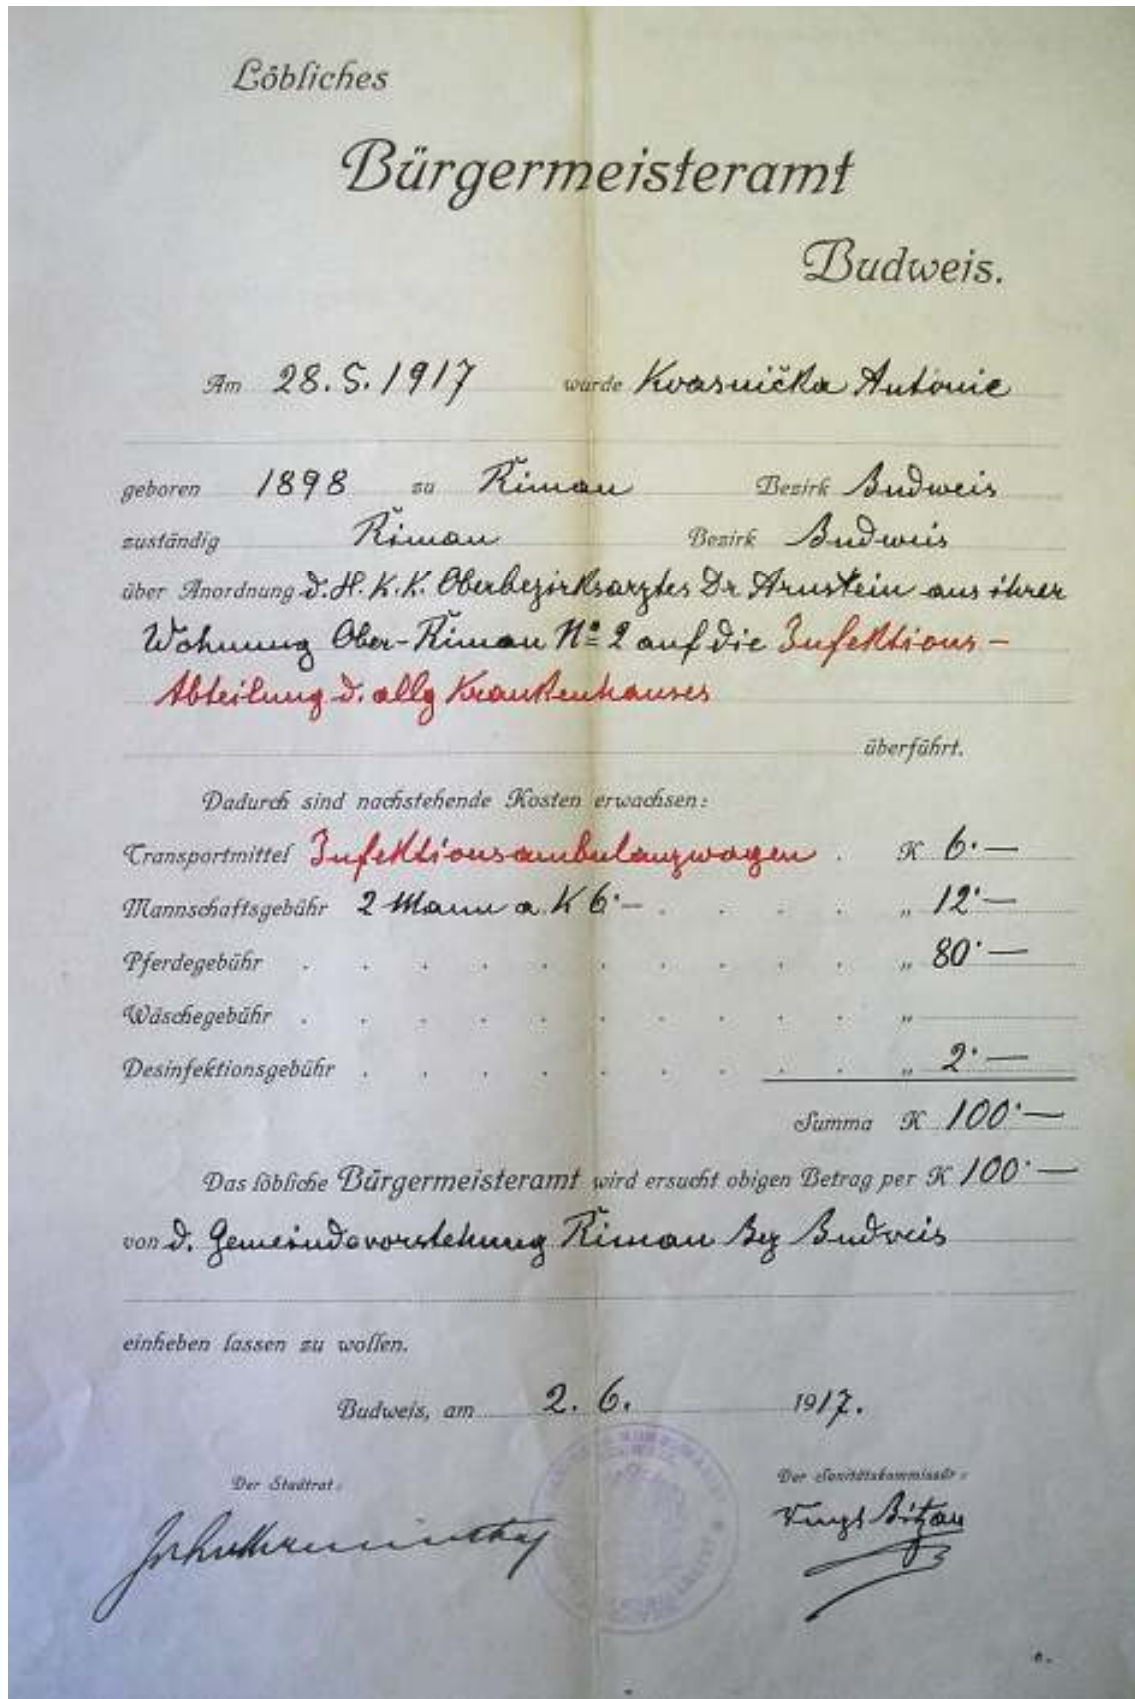 Löbliches
Bürgermeisteramt
Budweis.
Am 28.5.1917 wurde Kvasnička Antonie
geboren 1898 zu Řimau Bezirk Budweis
zuständig Řimau Bezirk Budweis
über Anordnung d. H. K. K. Oberbezirksarztes Dr Arnstein aus ihrer
Wohnung Ober-Řimau No 2 auf die Infektions-
Abteilung d. allg Krankenhauses
überführt.
Dadurch sind nachstehende Kosten erwachsen:
Transportmittel Infektionsambulanzwagen . K 6·—
Mannschaftsgebühr 2 Mann a K 6·— . . . . „ 12·—
Pferdegebühr . . . . . . . . . . „ 80·—
Wäschegebühr . . . . . . . . . . „
Desinfektionsgebühr . . . . . . . . . „ 2·—
Summa K 100·—
Das löbliche Bürgermeisteramt wird ersucht obigen Betrag per K 100·—
von d. Gemeindevorstehung Řimau Bez Budweis
einheben lassen zu wollen.
Budweis, am 2. 6. 1917.
Der Stadtrat: Der Sanitätskommissär: